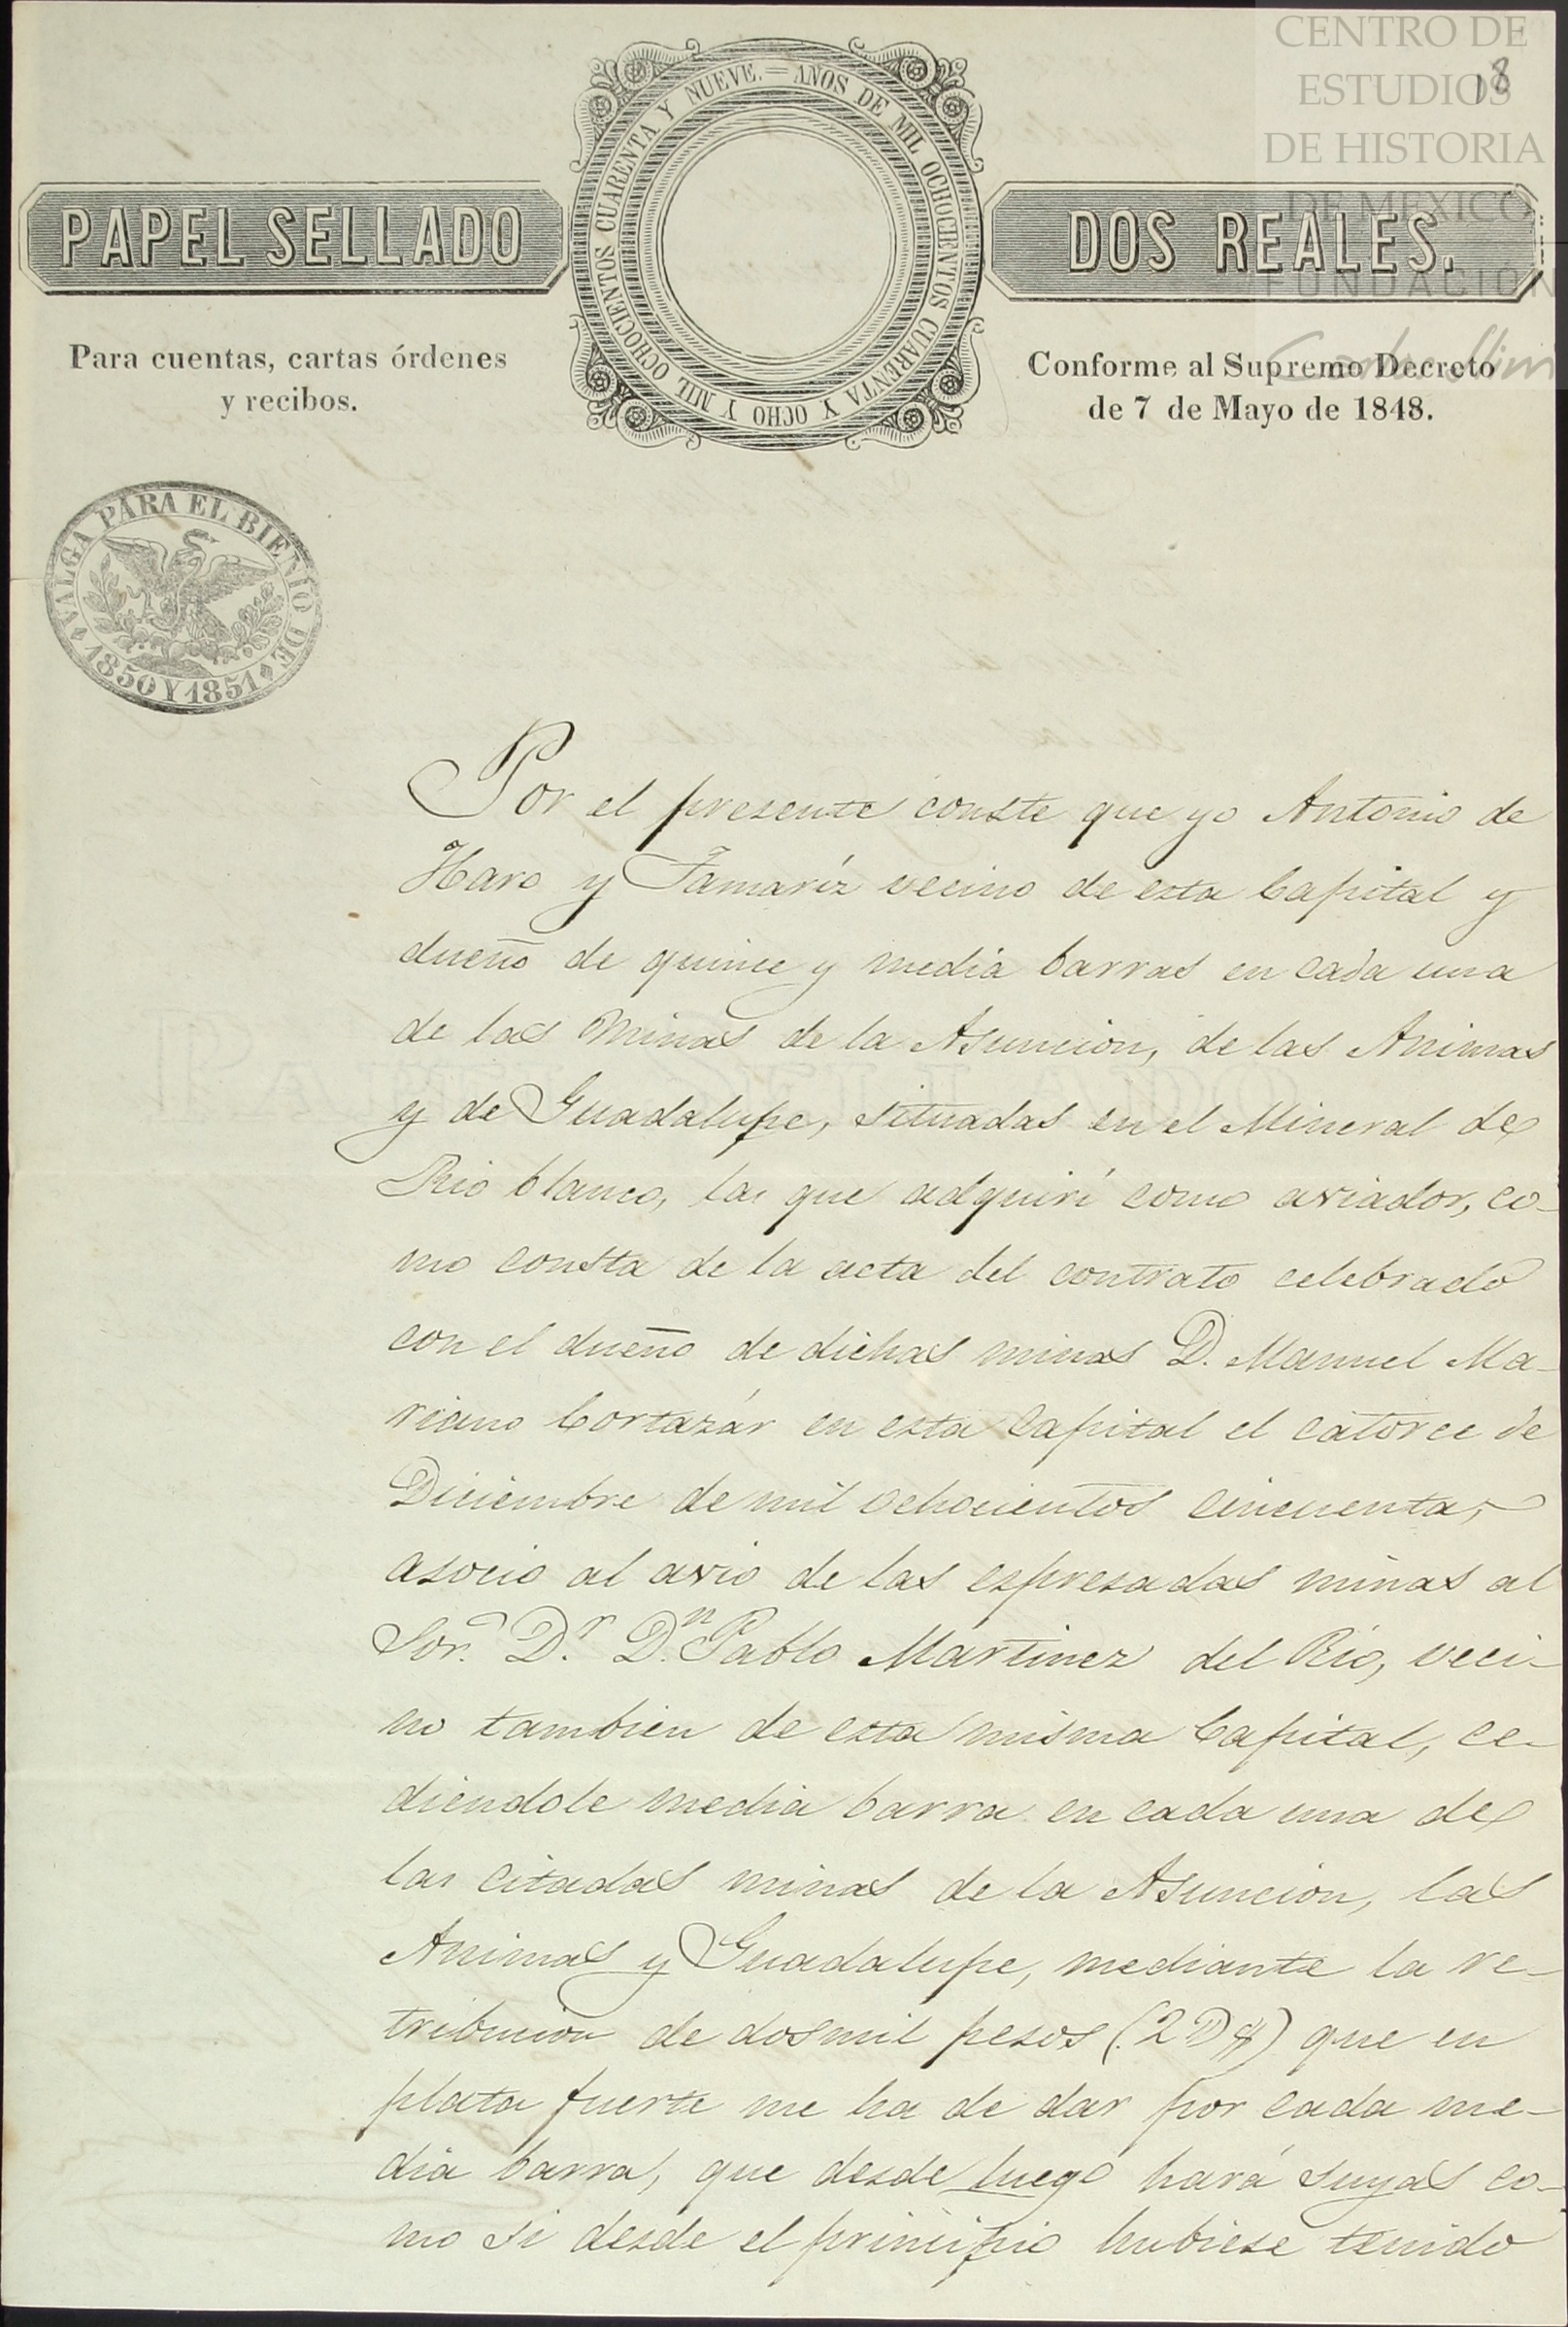 CENTRO DE
ESTUDIOS
DE HISTORIA
DE MEXICO
FUNDACIÓN
Carlos Slim
18
AÑOS DE MIL OCHOCIENTOS CUARENTA Y OCHO Y MIL OCHOCIENTOS CUARENTA Y NUEVE.=
PAPEL SELLADO
DOS REALES.
Para cuentas, cartas órdenes
y recibos.
Conforme al Supremo Decreto
de 7 de Mayo de 1848.
VALGA PARA EL BIENIO DE
1850 Y 1851
Por el presente conste que yo Antonio de
Haro y Tamaríz vecino de esta Capital y
dueño de quince y media barras en cada una
de las Minas de la Asuncion, de las Animas
y de Guadalupe, situadas en el Mineral de
Rio blanco, las que adquirí como aviador, co-
mo consta de la acta del contrato celebrado
con el dueño de dichas minas D. Manuel Ma-
riano Cortazár en esta Capital el catorce de
Diciembre de mil ochocientos cincuenta,
asocio al avio de las espresadas minas al
Sor. Dr. Dn. Pablo Martinez del Rio, veci-
no tambien de esta misma Capital, ce-
diendole media barra en cada una de
las citadas minas de la Asuncion, las
Animas y Guadalupe, mediante la re-
tribucion de dosmil pesos (2D$) que en
plata fuerte me ha de dar por cada me-
dia barra, que desde luego hará suyas co-
mo si desde el principio hubiese tenido